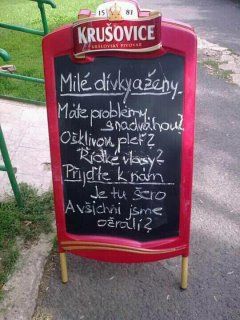 1581
KRUŠOVICE
KRÁLOVSKÝ PIVOVAR
Milé dívky a ženy.
Máte problémy
s nadváhou?
Ošklivou pleť?
Řídké vlasy?
Přijďte k nám
Je tu šero
A všichni jsme
ožralí?